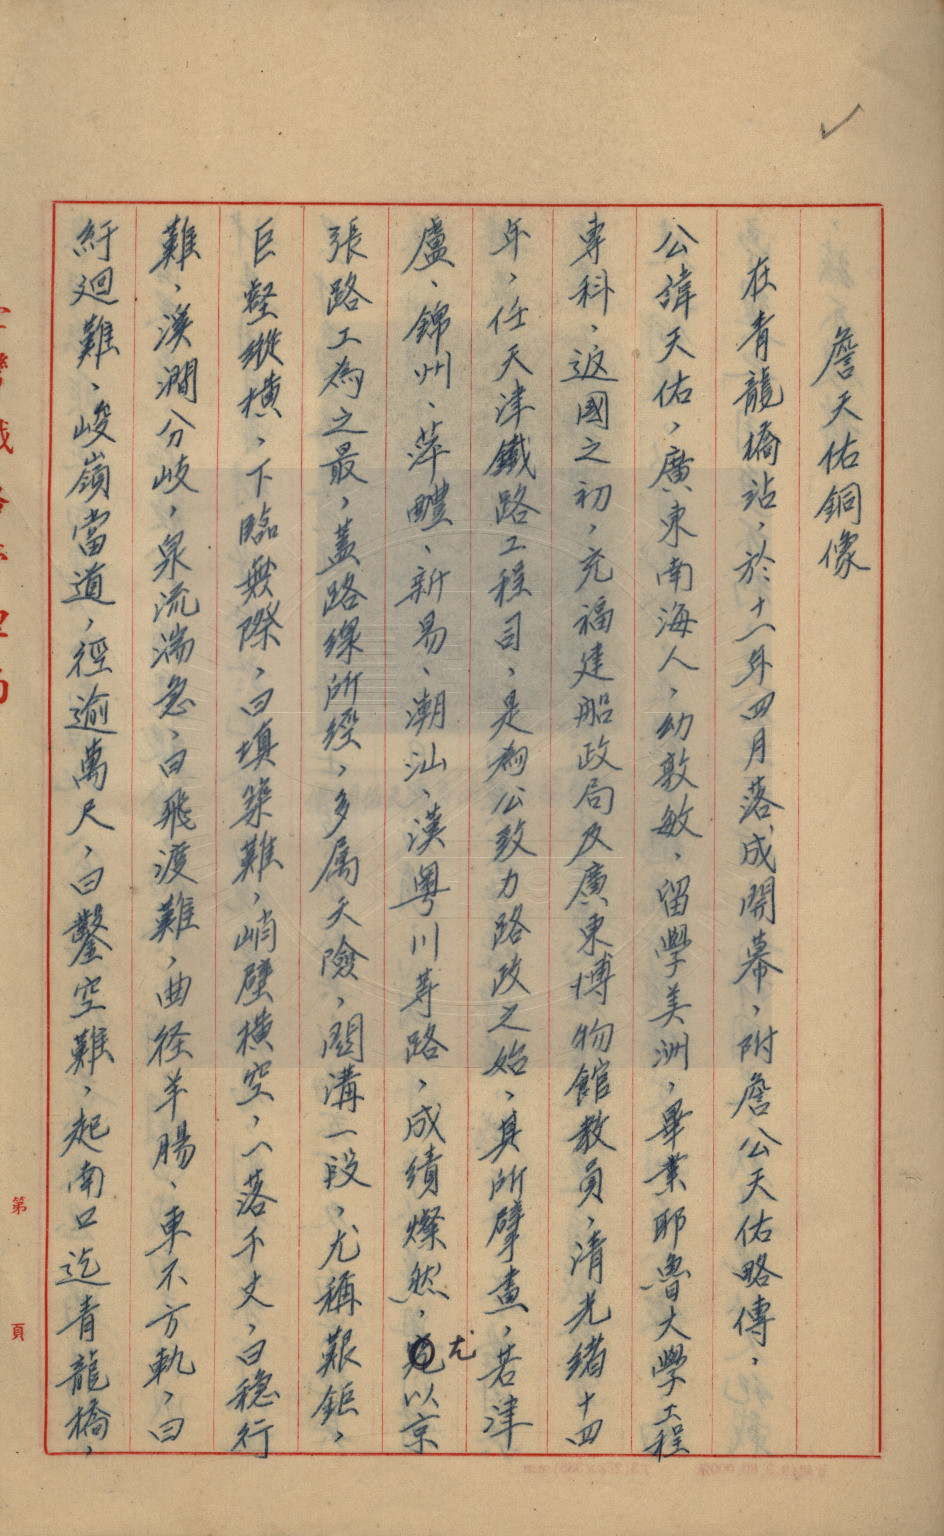 詹天佑銅像
在青龍橋站，於十一年四月落成開幕，附詹公天佑略傳．
公諱天佑，廣東南海人，幼敦敏，留學美洲，畢業耶魯大學工程
專科，返國之初，充福建船政局及廣東博物館教員，清光緒十四
年，任天津鐵路工程司，是為公致力路政之始，其所擘畫，若津
盧、錦州、萍醴、新易、潮汕、漢粤川等路，成績燦然，尤以京
張路工為之最，蓋路線所經，多属天險，関溝一段，尤稱艱鉅，
巨壑縱橫，下臨無際，曰填築難，峭壁橫空，一落千丈，曰穩行
難，溪澗分岐，泉流湍急，曰飛渡難，曲径羊腸，車不方軌，曰
紆迴難，峻嶺當道，徑逾萬尺，曰鑿空難，起南口迄青龍橋，
第 頁